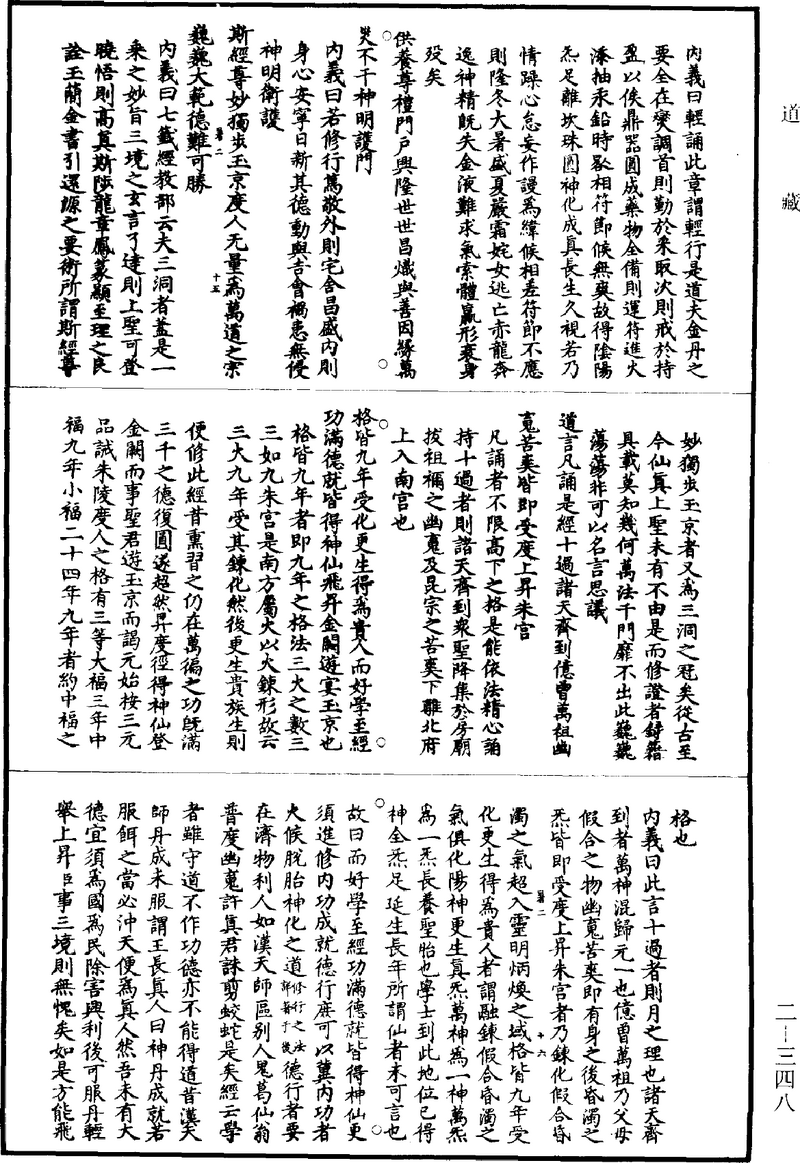 道藏
內義曰輕誦此章謂輕行是道夫金丹之
要全在燮調首則勤於采取次則戒於持
盈以俟鼎器圓成藥物全備則運符進火
添抽汞鉛時晷相符節候無爽故得陰陽
炁足離坎珠圓神化成真長生久視若乃
情躁心怠妄作謾為緯候相差符節不應
則隆冬大暑盛夏嚴霜姹女逃亡赤龍奔
逸神精既失金液難求氣索體羸形衰身
歿矣
供養尊禮門戶興隆世世昌熾與善因緣萬
災不干神明護門
內義曰若修行篤敬外則宅舍昌盛內則
身心安寧日新其德動與吉會禍患無侵
神明衛護
斯經尊妙獨步玉京度人无量為萬道之宗
巍巍大範德難可勝
內義曰七籤經教部云夫三洞者蓋是一
乘之妙旨三境之玄言了達則上聖可登
曉悟則高真斯陟龍章鳳篆顯至理之良
詮玉簡金書引還源之要術所謂斯經尊
妙獨步玉京者又為三洞之冠矣從古至
今仙真上聖未有不由是而修證者錄籍
具載莫知幾何萬法千門靡不出此巍巍
蕩蕩非可以名言思議
道言凡誦是經十過諸天齊到億曾萬祖幽
䰟苦爽皆即受度上昇朱宮
凡誦者不限高下之格是能依法精心誦
持十過者則諸天齊到衆聖降集於房廟
拔祖禰之幽䰟及昆宗之苦爽下離北府
上入南宮也
格皆九年受化更生得為貴人而好學至經
功滿德就皆得神仙飛昇金闕遊宴玉京也
格皆九年者即九年之格法三火之數三
三如九朱宮是南方屬火以火鍊形故云
三火九年受其鍊化然後更生貴族生則
便修此經昔熏習之仍在萬徧之功既滿
三千之德復圓遂超然昇度徑得神仙登
金闕而事聖君遊玉京而謁元始按三元
品誡朱陵度人之格有三等大福三年中
福九年小福二十四年九年者約中福之
格也
內義曰此言十過者則月之理也諸天齊
到者萬神混歸元一也億曾萬祖乃父母
假合之物幽䰟苦爽即有身之後昏濁之
炁皆即受度上昇朱宮者乃鍊化假合昏
濁之氣超入靈明炳煥之域格皆九年受
化更生得為貴人者謂融鍊假合昏濁之
氣俱化陽神更生真炁萬神為一神萬炁
為一炁長養聖胎也學士到此地位已得
神全炁足延生長年所謂仙者未可言也
故曰而好學至經功滿德就皆得神仙更
須進修內功成就德行庶可以冀內功者
火候脫胎神化之道修行之法詳著于後德行者要
在濟物利人如漢天師區別人鬼葛仙翁
普度幽䰟許真君誅剪蛟蛇是矣經云學
者雖守道不作功德亦不能得道昔漢天
師丹成未服謂王長真人曰神丹成就若
服餌之當必沖天便為真人然吾未有大
德宜須為國為民除害興利後可服丹輕
舉上昇臣事三境則無愧矣如是方能飛
二－三四八